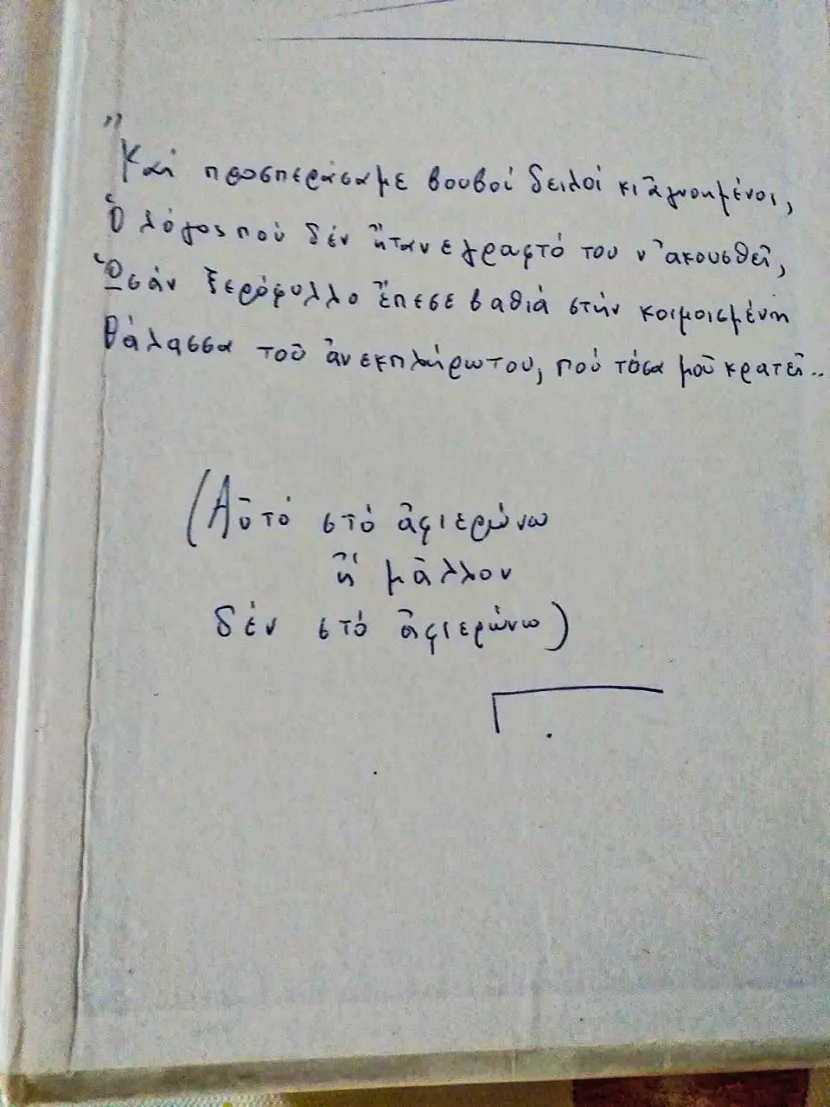 "Καί προσπεράσαμε βουβοί δειλοί κι ἀγνοημένοι,
Ὁ λόγος πού δέν ἦταν εγραφτό του ν' ακουσθεῖ,
Ὡσάν ξερόφυλλο ἔπεσε βαθιά στήν κοιμοισμένη
θάλασσα τοῦ ἀνεκπλήρωτου, πού τόσα μοῦ κρατεῖ..
(Αὐτό στό ἀφιερώνω
ἤ μᾶλλον
δέν στό ἀφιερώνω)
Γ.